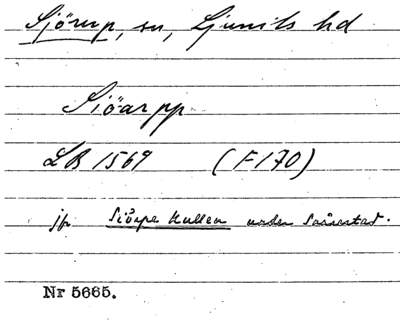 Sjörup, sn, Ljunits hd
Siöarpp
LB 1569 (F170)
jfr Siörpe Kullen under Snårestad.
Nr 5665.